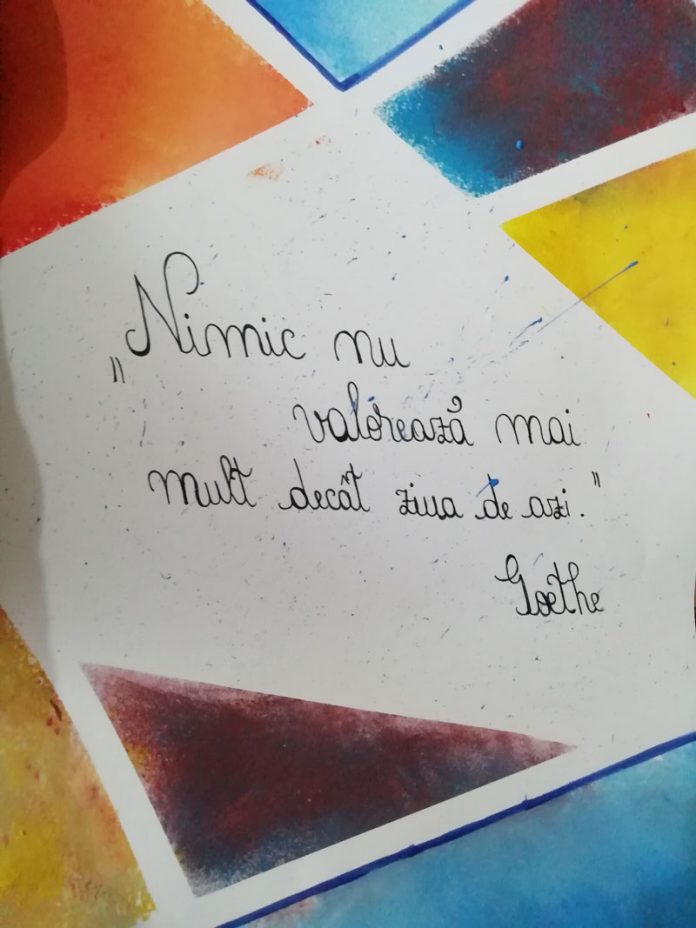 „Nimic nu
valorează mai
mult decât ziua de azi."
Goethe